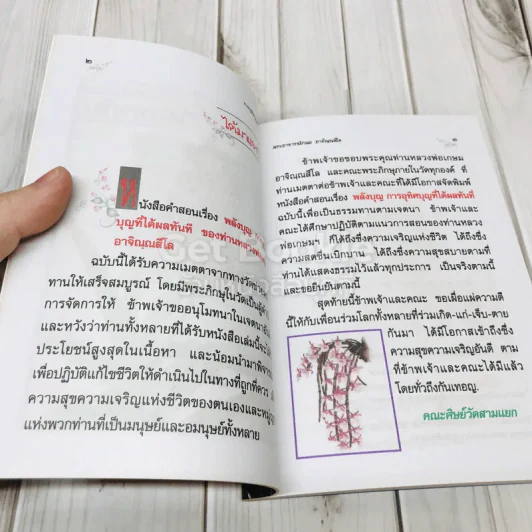 ๒
ได้มาเพร
หนังสือคำสอนเรื่อง พลังบุญ
บุญที่ได้ผลทันที ของท่านหลวงพ่อ
อาจิณฺณสีโล
ฉบับนี้ได้รับความเมตตาจากทางวัด
ทานให้เสร็จสมบูรณ์ โดยมีพระภิกษุในวัดเป็นผู้
การจัดการให้ ข้าพเจ้าขออนุโมทนาในเจตนา
และหวังว่าท่านทั้งหลายที่ได้รับหนังสือเล่มนี้จะ
ประโยชน์สูงสุดในเนื้อหา และน้อมนำมาพิจ
เพื่อปฏิบัติแก้ไขชีวิตให้ดำเนินไปในทางที่ถูกที่ควร
ความสุขความเจริญแห่งชีวิตของตนเองและหมู่
แห่งพวกท่านที่เป็นมนุษย์และอมนุษย์ทั้งหลาย
พระอาจารย์เกษม อาจิณฺณสีโล
๓
ข้าพเจ้าขอขอบพระคุณท่านหลวงพ่อเกษม
อาจิณฺณสีโล และคณะพระภิกษุภายในวัดทุกองค์ ที่
ท่านเมตตาต่อข้าพเจ้าและคณะที่ได้มีโอกาสจัดพิมพ์
หนังสือคำสอนเรื่อง พลังบุญ การอุทิศบุญที่ได้ผลทันที
ฉบับนี้เพื่อเป็นธรรมทานตามเจตนา ข้าพเจ้าและ
คณะได้ศึกษาปฏิบัติตามแนวการสอนท่านหลวง
พ่อเกษมฯ ได้ถึงซึ่งความเจริญแห่งชีวิต ได้ถึงซึ่ง
ความสดชื่นเบิกบาน ได้ถึงซึ่งความสุขสบายตามที่
ท่านได้แสดงธรรมไว้แล้วทุกประการ เป็นจริงตามนี้
และขอยืนยันตามนี้
สุดท้ายนี้ข้าพเจ้าและคณะ ขอเผื่อแผ่ความดี
นี้ให้กับเพื่อนร่วมโลกทั้งหลายที่ร่วมเกิด-แก่-เจ็บ-ตาย
กันมา ได้มีโอกาสเข้าถึงซึ่ง
ความสุขความเจริญอันดี ตาม
ที่ข้าพเจ้าและคณะได้มีแล้ว
โดยทั่วถึงกันเทอญ.
คณะศิษย์วัดสามแยก